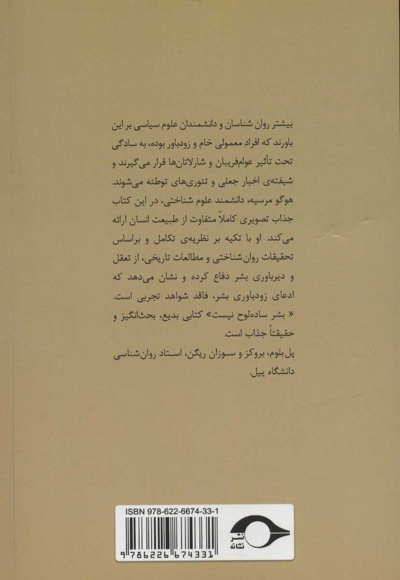 بیشتر روان شناسان و دانشمندان علوم سیاسی بر این
باورند که افراد معمولی خام و زودباور بوده، به سادگی
تحت تأثیر عوام‌فریبان و شارلاتان‌ها قرار می‌گیرند و
شیفته‌ی اخبار جعلی و تئوری‌های توطئه می‌شوند.
هوگو مرسیه، دانشمند علوم شناختی، در این کتاب
جذاب تصویری کاملاً متفاوت از طبیعت انسان ارائه
می‌کند. او با تکیه بر نظریه‌ی تکامل و براساس
تحقیقات روان‌شناختی و مطالعات تاریخی، از تعقل
و دیرباوری بشر دفاع کرده و نشان می‌دهد که
ادعای زودباوری بشر، فاقد شواهد تجربی است.
« بشر ساده‌لوح نیست» کتابی بدیع، بحث‌انگیز و
حقیقتاً جذاب است.
پل‌بلوم، بروکز و سوزان ریگن، استاد روان‌شناسی
دانشگاه ییل.
ISBN 978-622-6674-33-1
9 786226 674331
نشر
نشانه